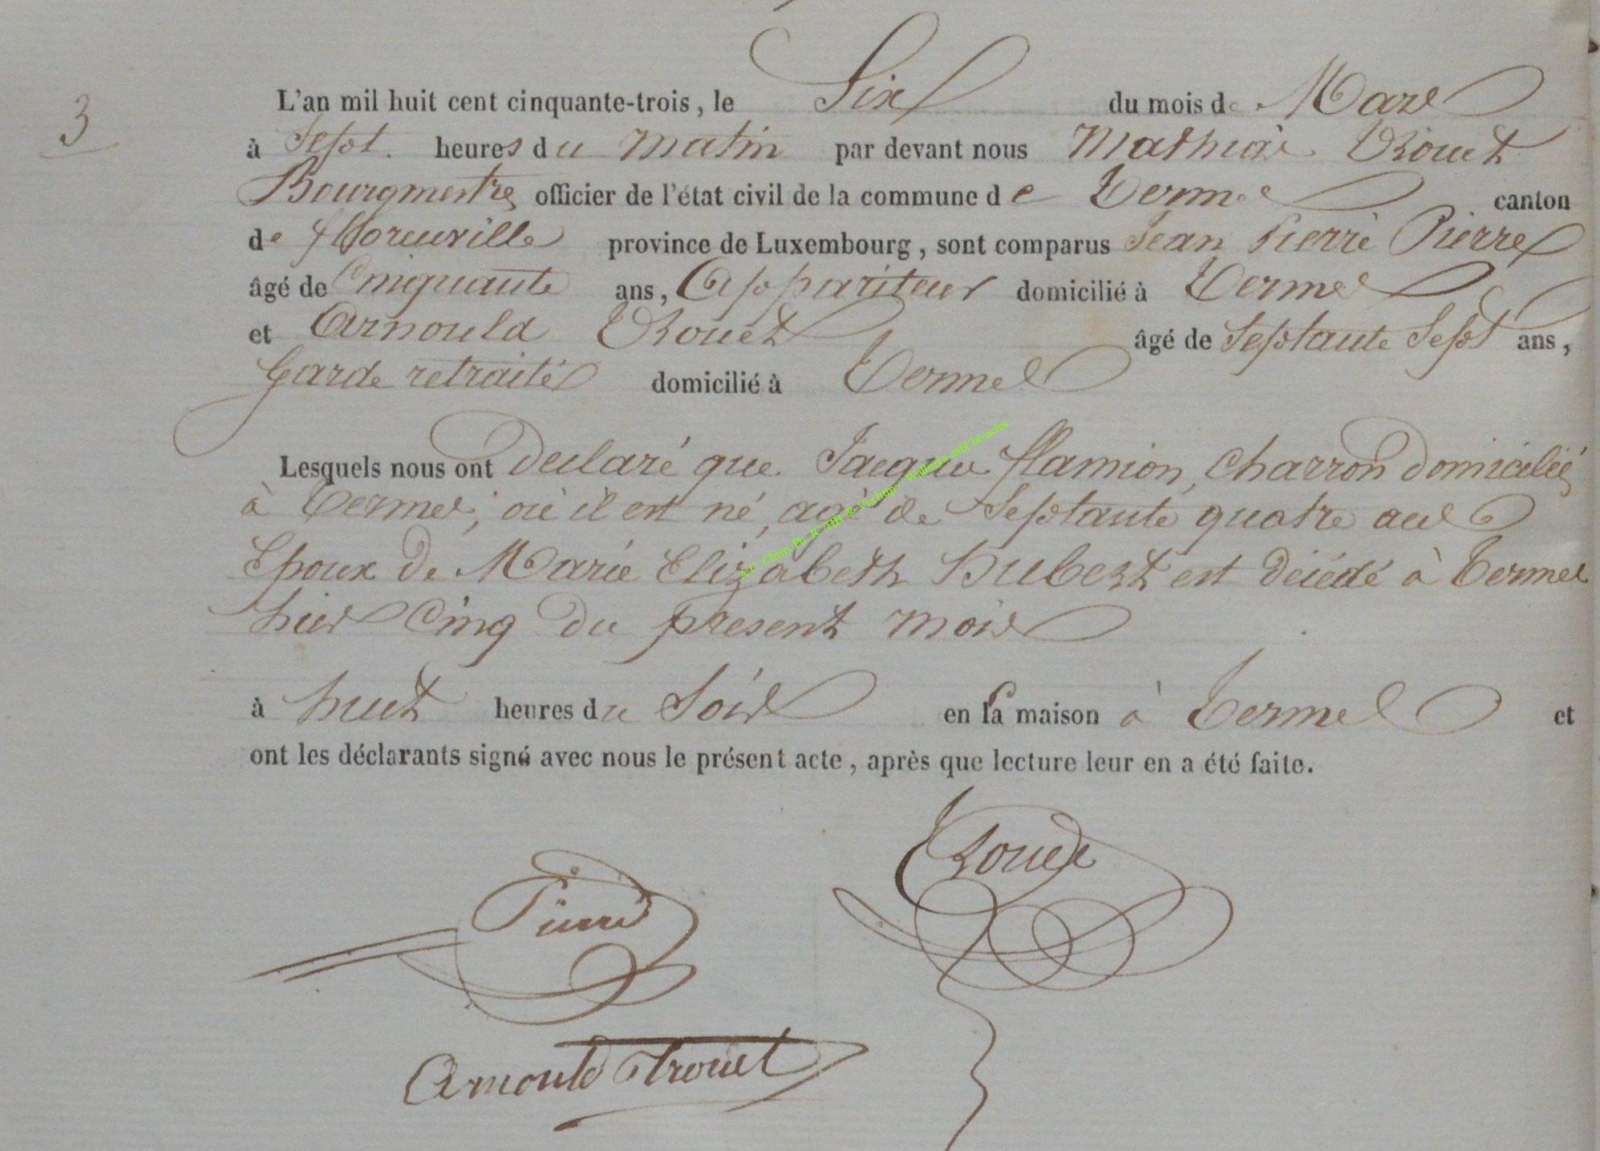 3
L'an mil huit cent cinquante-trois, le Six du mois de Mars
à Sept heures du matin par devant nous Mathias Trouet
Bourgmestre officier de l'état civil de la commune de Termes canton
de florenville province de Luxembourg, sont comparus Jean Pierre Pierre
âgé de Cinquante ans, Appariteur domicilié à Termes
et Arnould Trouet âgé de Septante Sept ans,
Garde retraité domicilié à Termes
Lesquels nous ont declaré que Jacques flamion, Charron domicilié
à Termes, où il est né, agé de Septante quatre ans
Epoux de Marie Elizabeth Hubert est décédé à Termes
hier Cinq du present mois
à huit heures du Soir en sa maison à Termes et
ont les déclarants signé avec nous le présent acte, après que lecture leur en a été faite.
Trouet
Pierre
Arnould Trouet